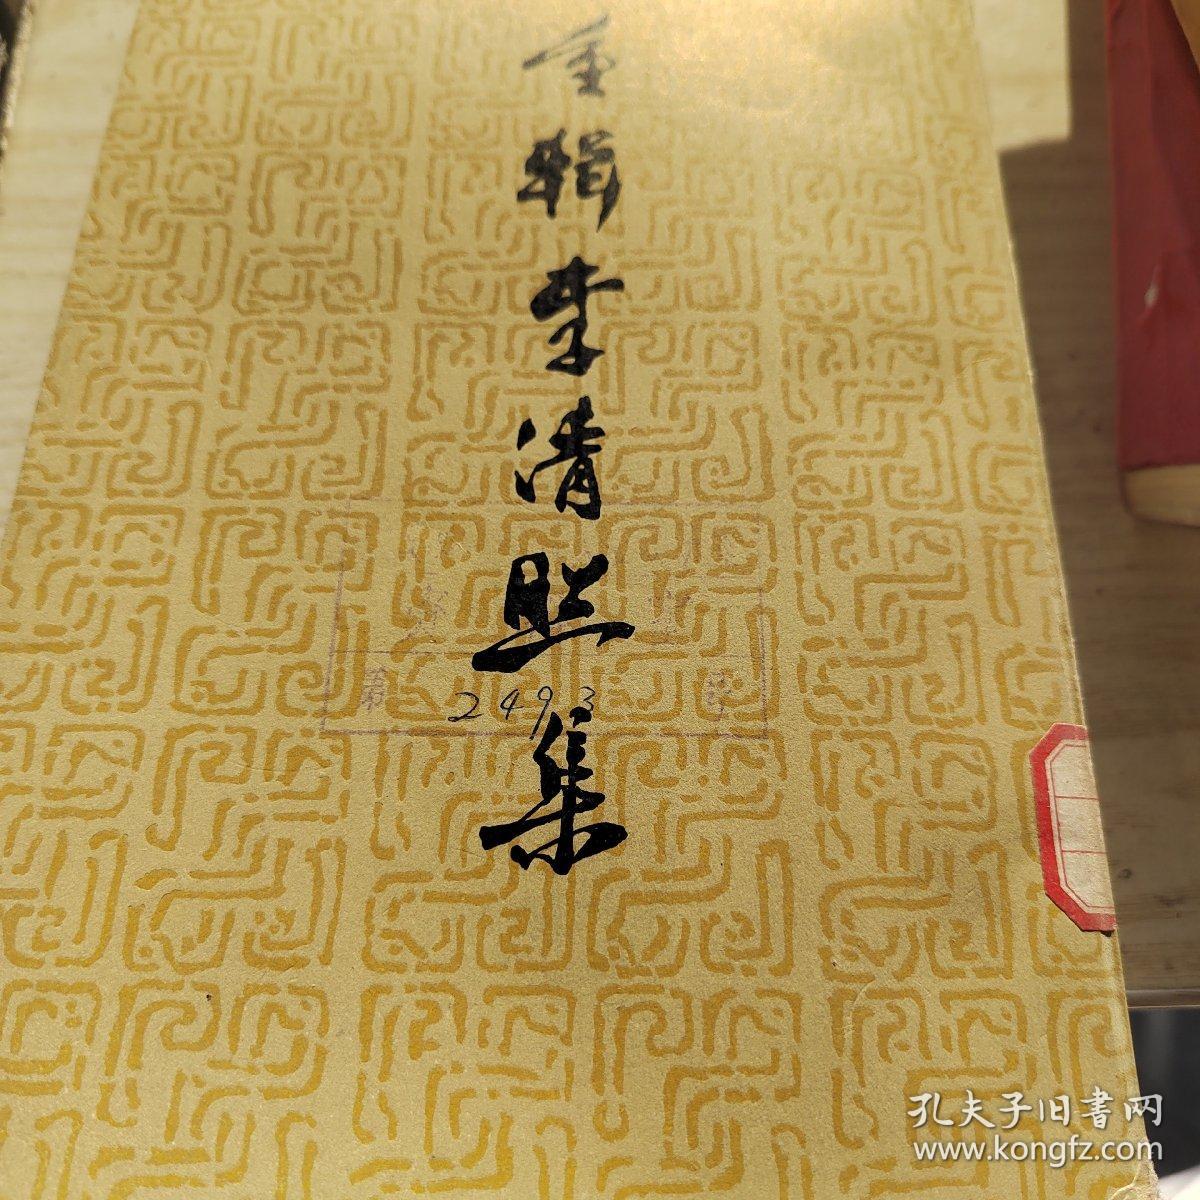 重辑李清照集
2493
第 号
孔夫子旧书网
www.kongfz.com